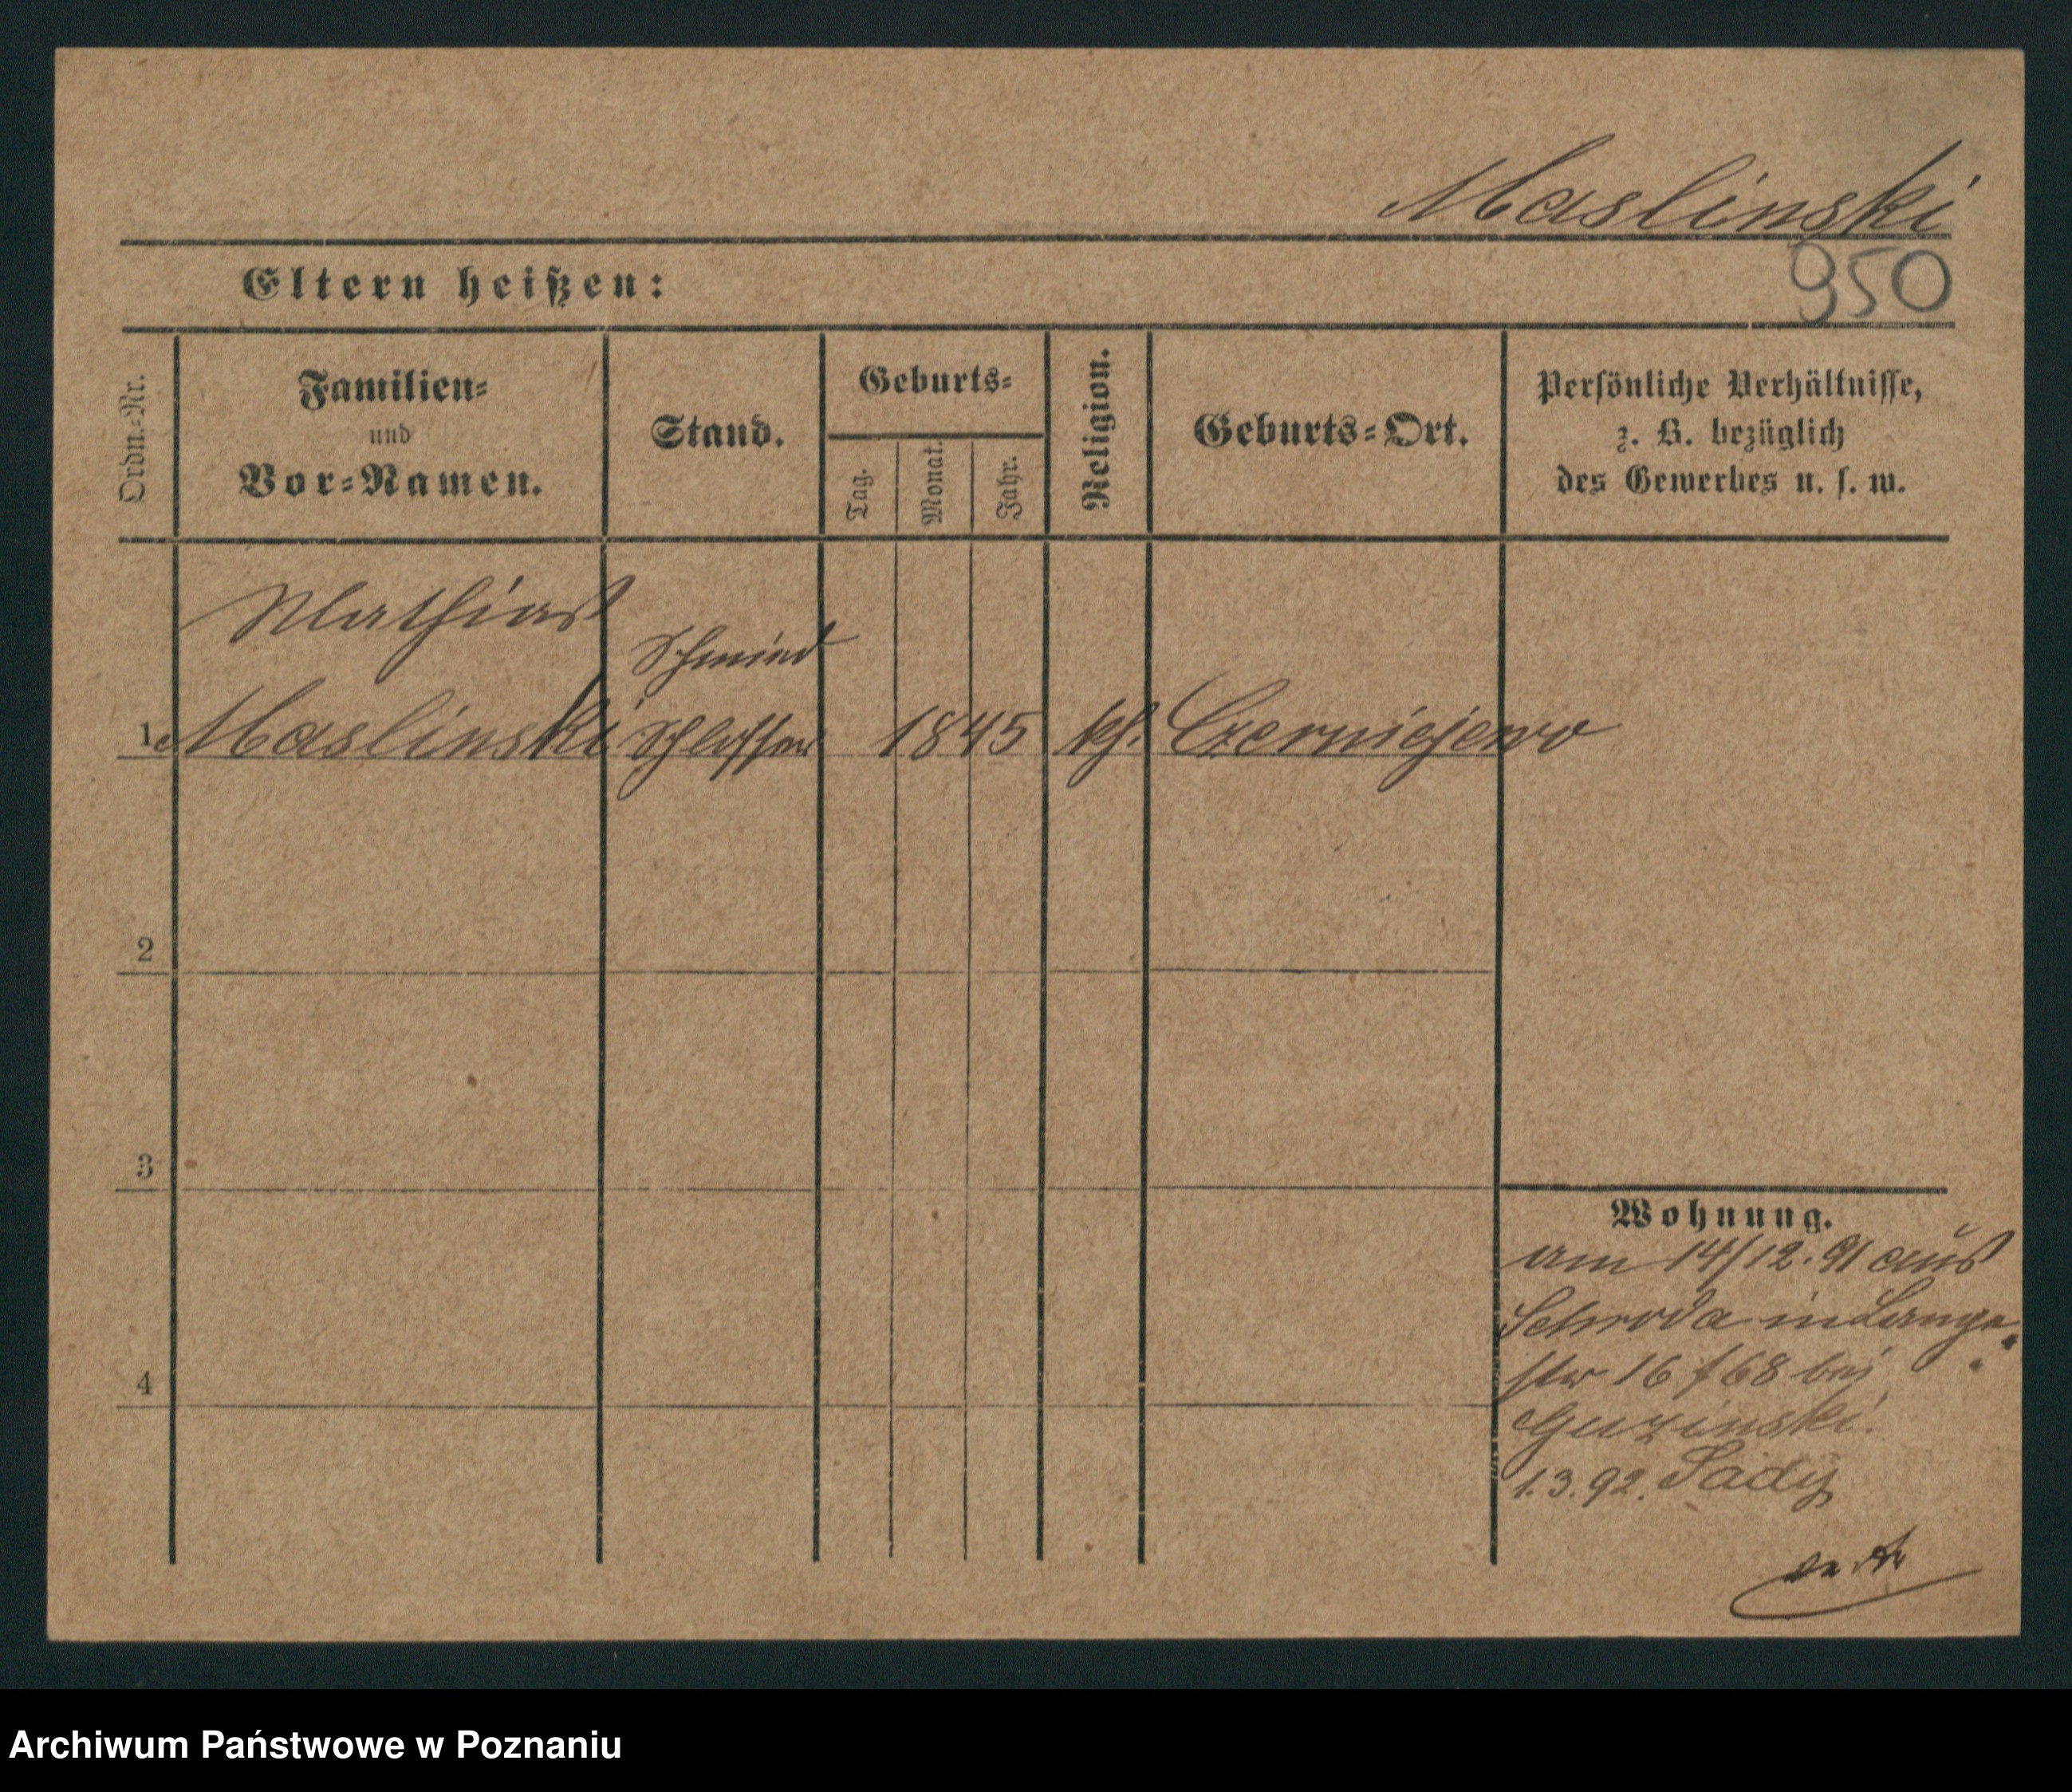 Maslinski
950
Eltern heißen:
Ordn.-Nr.
Familien-
und
Vor-Namen.
Stand.
Geburts-
Tag.
Monat.
Jahr.
Religion.
Geburts-Ort.
Persönliche Verhältnisse,
z. B. bezüglich
des Gewerbes u. s. w.
Mathias
Schmied
1 Maslinski Schlosser 1845 kh. Czerniejewo
2
3
4
Wohnung.
am 14/12. 91 aus
Schroda in Lange
str 16 f 68 bei
Guzinski.
1.3.92. Sady
Archiwum Państwowe w Poznaniu